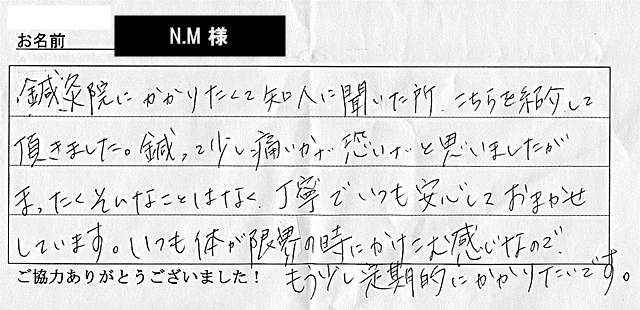 お名前 N.M 様
鍼灸院にかかりたくて知人に聞いた所、こちらを紹介して
頂きました。鍼って少し痛いかナ 恐いナと思いましたが
まったくそんなことはなく、丁寧でいつも安心しておまかせ
しています。いつも体が限界の時にかけこむ感じなので、
もう少し定期的にかかりたいです。
ご協力ありがとうございました！